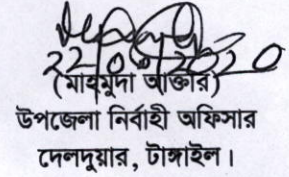 22.09.2020
(মাহমুদা আক্তার)
উপজেলা নির্বাহী অফিসার
দেলদুয়ার, টাঙ্গাইল।